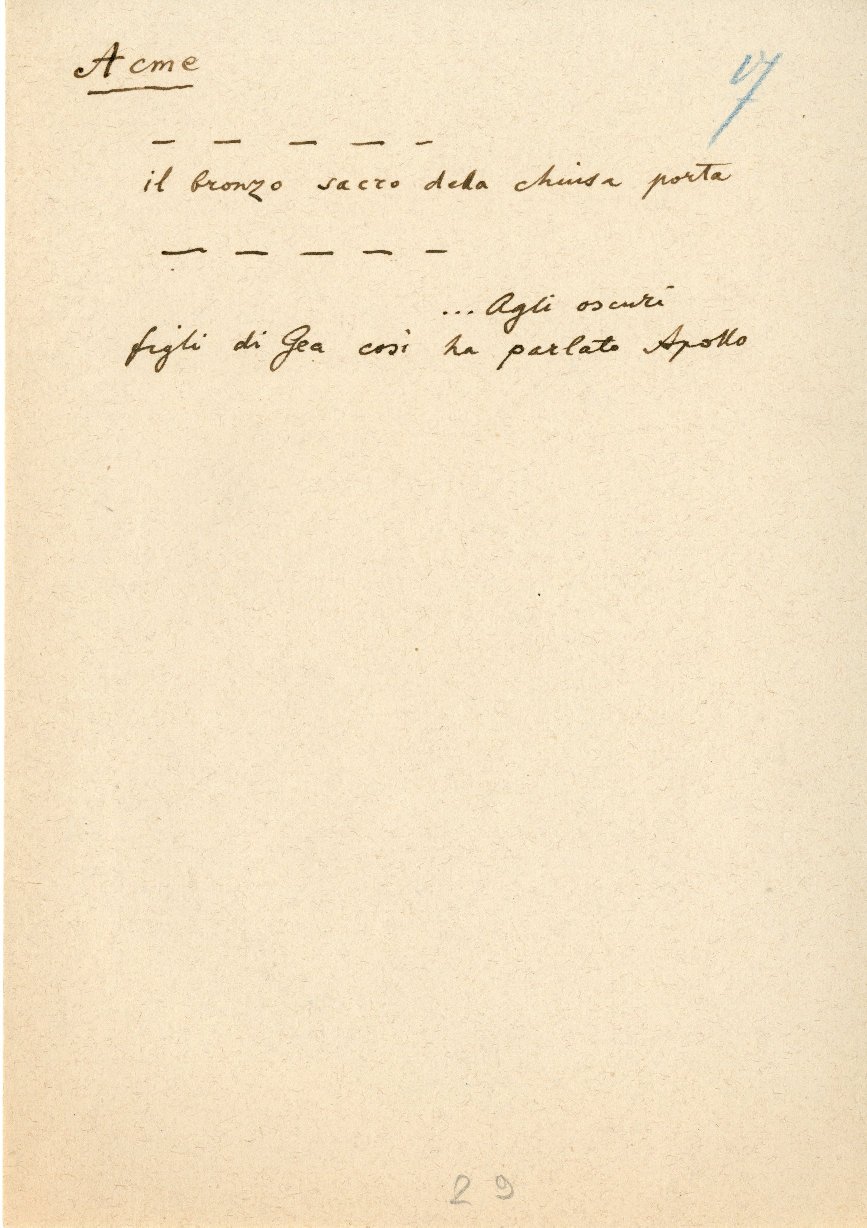 Acme
17
— — — — –
il bronzo sacro della chiusa porta
— — — — –
... Agli oscuri
figli di Gea così ha parlato Apollo
29